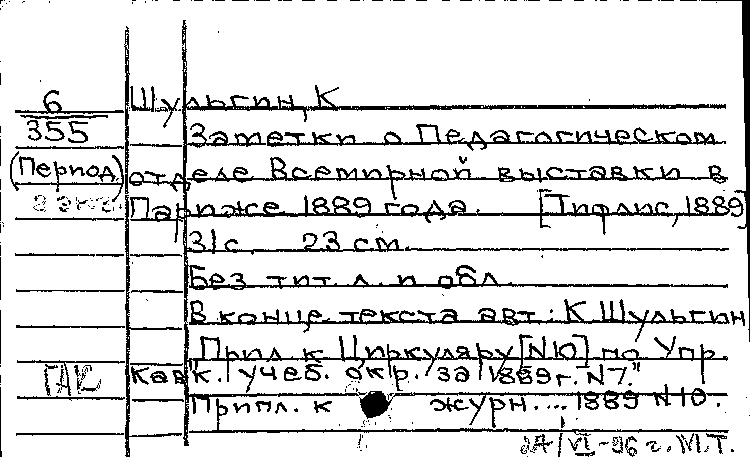 6
355
(Период)
2 экз.
Шульгин, К
Заметки о Педагогическом
отделе Всемирной выставки в
Париже 1889 года. [Тифлис, 1889]
31 с. 23 см.
Без тит. л. и обл.
В конце текста авт.: К Шульгин
Прил. к Циркуляру [N10] по Упр.
Кав"к. учеб. окр. за 1889 г. N 7."
Припл. к журн.... 1889 N 10.
ГАК
24/VI-96 г. М.Т.